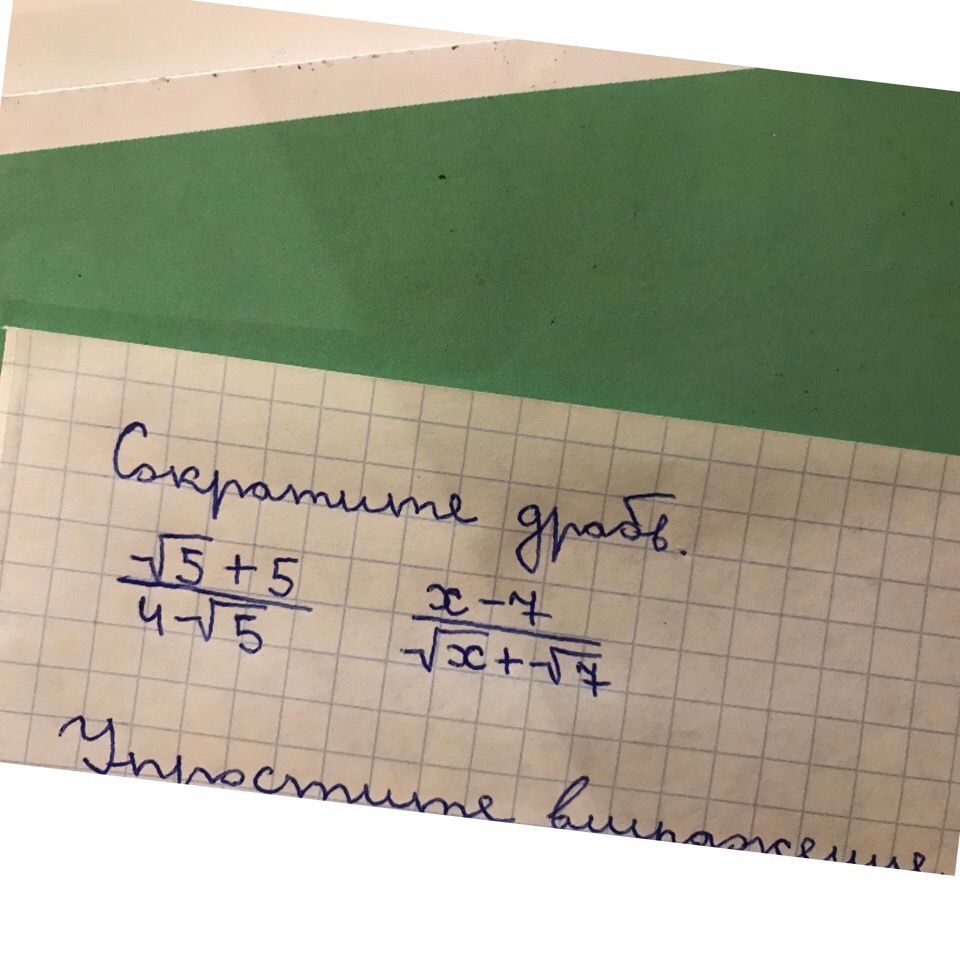 Сократите дробь.
(√5 + 5)/(4 - √5) (x - 7)/(√x + √7)
Упростите выражение.